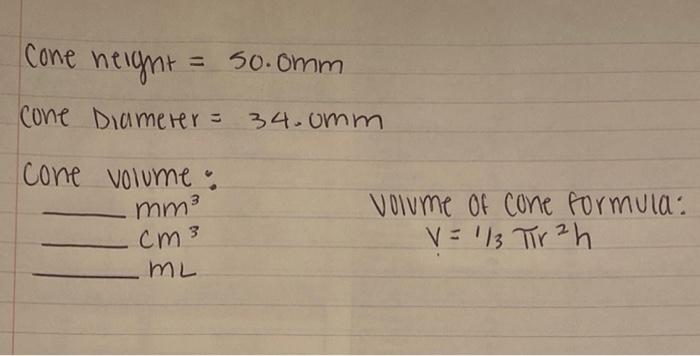 Cone height = 50.0mm
Cone Diameter = 34.0mm
Cone volume:
____ mm³
____ cm³
____ mL
Volume of cone formula:
V = 1/3 πr²h